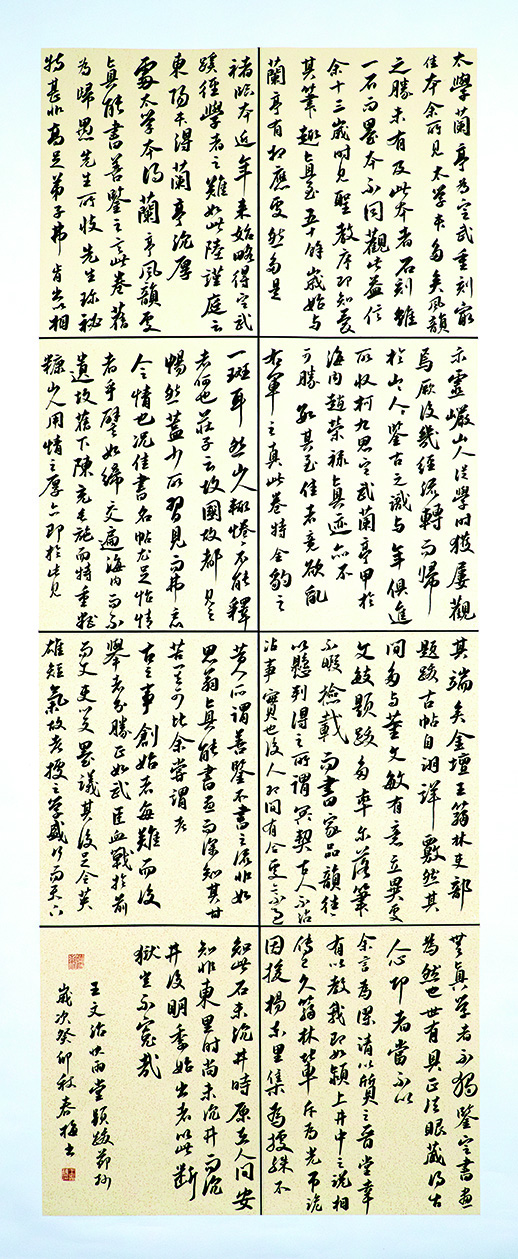 太學蘭亭為定武重刻最
佳本余所見太學本多矣風韻
之勝未有及此本者石刻雖
一石而墨本不同觀此益信
余十三歲時見聖教序即知愛
其筆趣直至五十餘歲始與
蘭亭有相應處然多是
褚臨本近年來始略得定武
蹊徑學者之難如此陸謹庭云
東陽本得蘭亭沉厚
處太學本得蘭亭風韻處
真能書善鑒之言此卷舊
為歸愚先生所收先生珍秘
特甚非高足弟子弗肯出以相
示靈巖山人從學時獲屢觀
焉厥後幾經流轉而歸
於山人鑒古之識與年俱進
所收柯九思定武蘭亭甲於
海內趙榮祿真迹亦不
可勝數其至佳者竟欲亂
右軍之真此卷特全豹之
一斑耳然山人輒惓不能釋
者何也莊子云故國故都見之
暢然蓋少所習見而弗忘
人情也况佳書名帖尤足怡情
者乎譬如締交遍海內而不
遺故舊下陳充美施而特重糟
糠山人用情之厚亦即於此見
其端矣金壇王翁林吏部
題跋古帖自詡詳覈然其
間多與董文敏有意立異處
文敏題跋多率尔落筆
不暇檢載而書家品韻往往
以懸到得之所謂冥契古人不沾
沾事實也後人即間有合處亦是
昔人所謂善鑒不書之流非如
思翁真能書畫而深知其甘
苦可比余嘗謂考
古之事創始者每難而後
舉者易勝正如武臣血戰於前
而文吏墨議其後足令英
雄短氣故考據之學盛行而天下
無真學者不獨鑒定書畫
為然也世有具正法眼藏得古
人心印者當不以
余言為深清以質之晉堂幸
有以教我即如潁上井中之說相
傳已久翁林斥為
因援楊東里集為據殊不
知此石未沉井時原在人間安
知非東里時尚未沉井而沉
井後明季始出者以此斷
獄豈不寃哉
王文治快雨堂題跋節抄
歲次癸卯秋春梅書